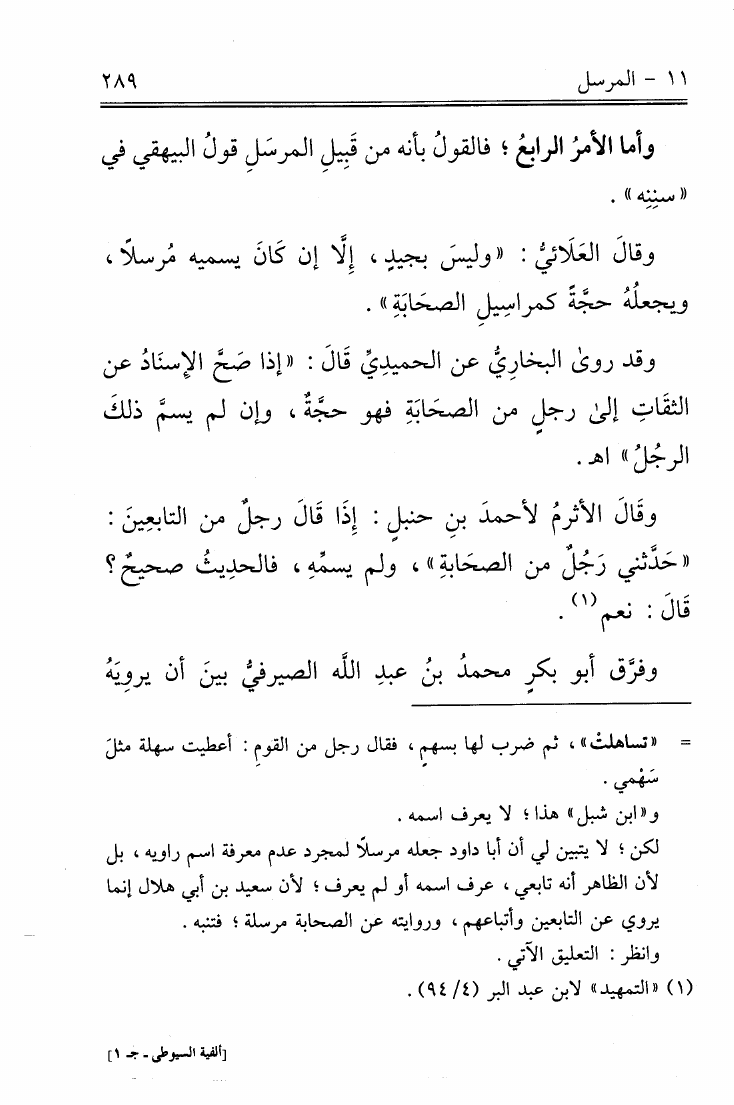 ١١ - المرسل ٢٨٩
وأما الأمرُ الرابعُ ؛ فالقولُ بأنه من قَبِيلِ المرسَلِ قولُ البيهقي في
«سننِه» .
وقالَ العَلَائيُّ : «وليسَ بجيدٍ ، إِلَّا إن كَانَ يسميه مُرسلًا ،
ويجعلُهُ حجَّةً كمراسِيلِ الصحَابَةِ» .
وقد روىٰ البخارِيُّ عن الحميدِيِّ قَالَ : «إذا صَحَّ الإسنَادُ عن
الثقَاتِ إلىٰ رجلٍ من الصحَابَةِ فهو حجَّةٌ ، وإن لم يسمَّ ذلكَ
الرجُلُ» اهـ .
وقَالَ الأثرمُ لأحمدَ بنِ حنبلٍ : إِذَا قَالَ رجلٌ من التابعِينَ :
«حَدَّثني رَجُلٌ من الصحَابةِ» ، ولم يسمِّهِ ، فالحدِيثُ صحيحٌ ؟
قَالَ : نعم(١) .
وفرَّق أبو بكرٍ محمدُ بنُ عبدِ اللَّه الصيرفيُّ بينَ أن يروِيَهُ
= «تساهلتْ» ، ثم ضرب لها بسهمٍ ، فقال رجل من القومِ : أعطيت سهلة مثلَ
سَهْمي .
و«ابن شبل» هذا ؛ لا يعرف اسمه .
لكن ؛ لا يتبين لي أن أبا داود جعله مرسلًا لمجرد عدم معرفة اسم راويه ، بل
لأن الظاهر أنه تابعي ، عرف اسمه أو لم يعرف ؛ لأن سعيد بن أبي هلال إنما
يروي عن التابعين وأتباعهم ، وروايته عن الصحابة مرسلة ؛ فتنبه .
وانظر : التعليق الآتي .
(١) «التمهيد» لابن عبد البر (٤/ ٩٤) .
[ألفية السيوطى - جـ ١]